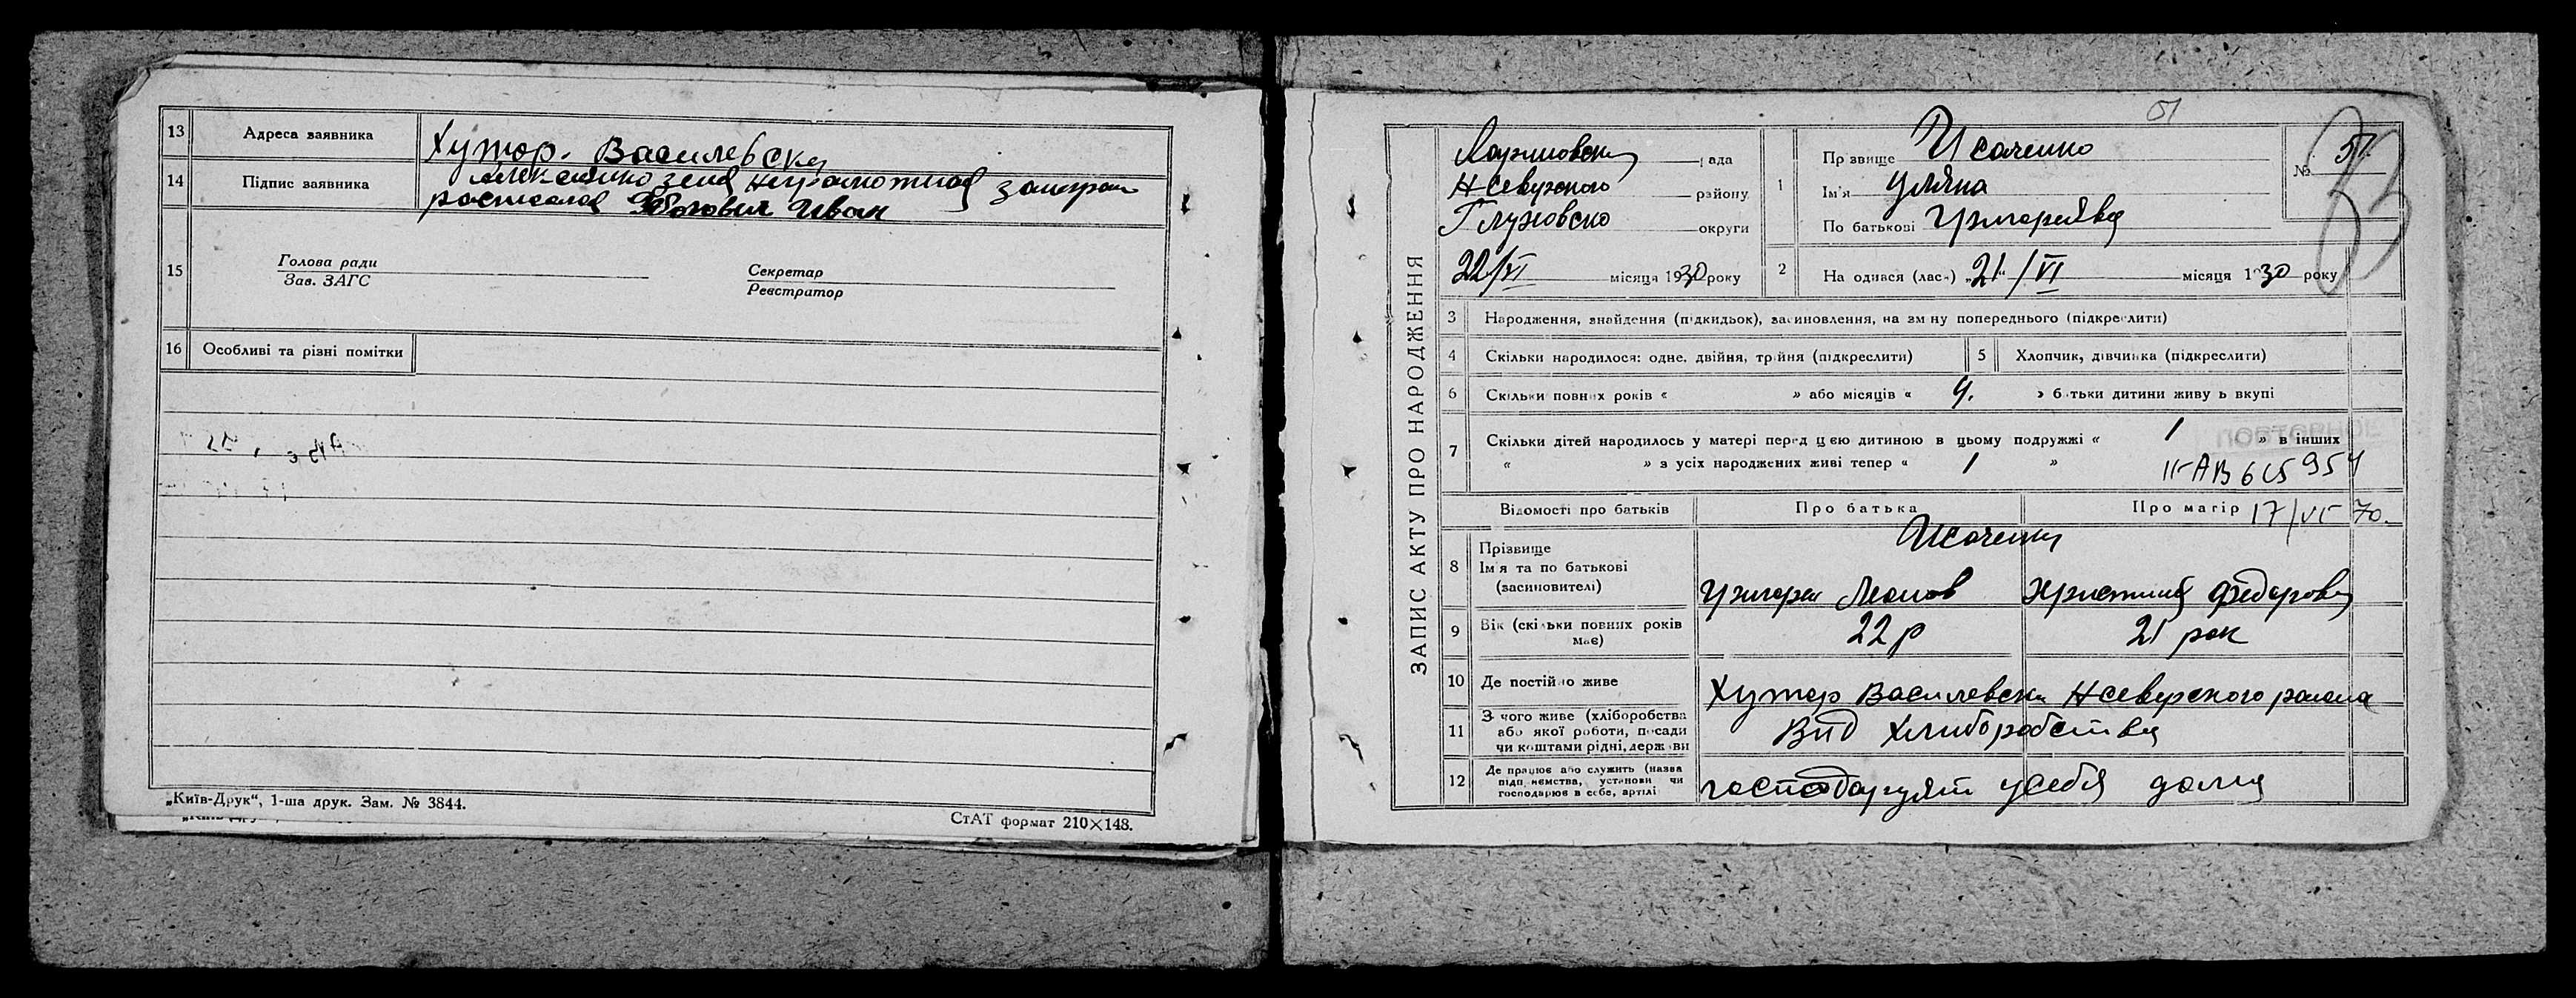 13 Адреса заявника Хутор. Василевски
14 Підпис заявника неграмотная
росписался Иван
15 Голова ради Секретар
Зав. ЗАГС Реєстратор
16 Особливі та різні помітки
„Київ-Друк“, 1-ша друк. Зам. № 3844.
СтАТ формат 210×148.
51
ЗАПИС АКТУ ПРО НАРОДЖЕННЯ
рада
Нсеверского району
Глуховско округи
22/VI місяця 1930 року
1 Прізвище Исаченко
Ім'я Уляна
По батькові Григориевна
№ 51
53
2 На одився (лась) „21“/VI місяця 1930 року
3 Народження, знайдення (підкидьок), засиновлення, на зміну попереднього (підкреслити)
4 Скільки народилося: одне, двійня, трійня (підкреслити) 5 Хлопчик, дівчинка (підкреслити)
6 Скільки повних років « » або місяців « 4. » батьки дитини живуть вкупі
7 Скільки дітей народилось у матері перед цією дитиною в цьому подружжі « 1 » в інших
« » з усіх народжених живі тепер « 1 »
ПОВТОРНОЕ
Відомості про батьків Про батька Про матір 17/VI 70.
8 Прізвище
Ім'я та по батькові
(засиновителі)
Исаченки
Григори Леонов Христина Федоровна
9 Вік (скільки повних років має) 22 р 21 рок
10 Де постійно живе Хутор Василевски Нсеверского района
11 З чого живе (хліборобства
або якої роботи, посади
чи коштами рідні, держави
Вид Хлиборобства
12 Де працює або служить (назва
підприємства, установи чи
господарює в себе, артілі
господаруют усебя дома